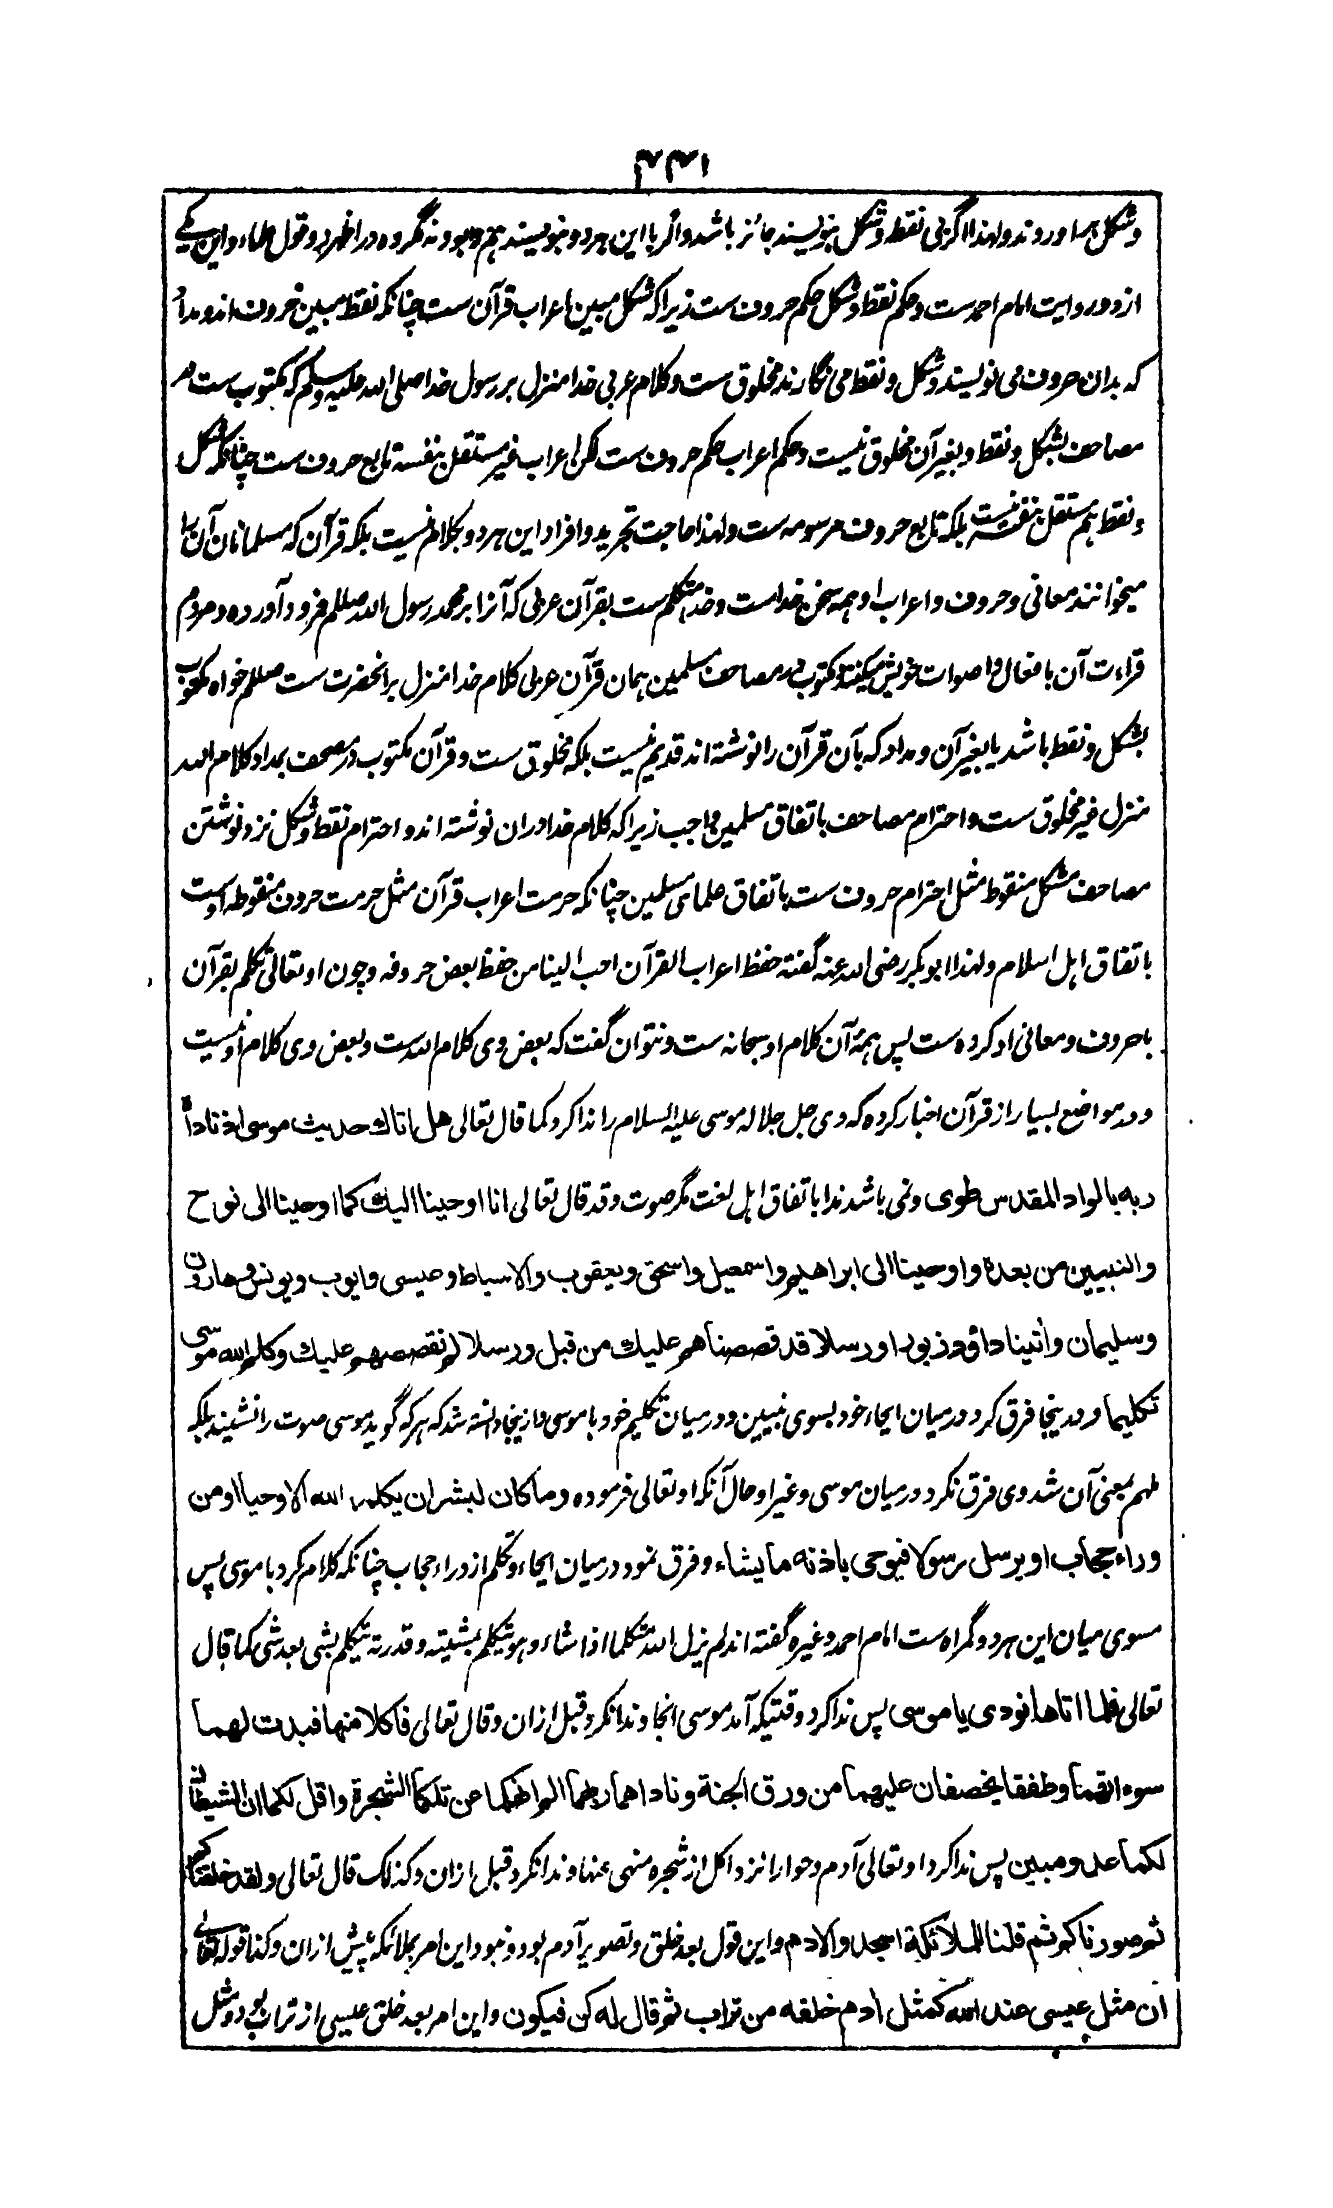 ۳۳۱
وشکل بها وردند ولهذا اگر بی نقط وشکل بنویسند جائز باشد واگر با این هر دو بنویسند هم وجود نه مکروه در اظهر دو قول علماء واین یکے
از دو روایت امام احمد ست وحکم نقط وشکل حکم حروف ست زیرا که شکل مبین اعراب قرآن ست چنانکه نقط مبین حروف اند ومداد
که بدان حروف می نویسند وشکل ونقط می نگارند مخلوق ست وکلام عربی خدا منزل بر رسول خدا صلی الله علیه وسلم که مکتوب ست در
مصاحف بشکل ونقط وبغیر آن مخلوق نیست وحکم اعراب حکم حروف ست لکن اعراب غیر مستقل بنفسه تابع حروف ست چنانکه شکل
ونقط هم مستقل بنفسه نیست بلکه تابع حروف مرسومه ست ولهذا حاجت تجرید وافراد این هر دو بکلام نیست بلکه قرآن که مسلمانان آن را
میخوانند معانی وحروف واعراب او همه سخن خداست وخدا متکلم ست بقرآن عربی که آنرا بر محمد رسول الله صللم فرود آورده ومردم
قراءت آن بافعال واصوات خویش میکنند ومکتوب در مصاحف مسلمین همان قرآن عربی کلام خدا منزل بر آنحضرت ست صللم خواه مکتوب
بشکل ونقط باشد یا بغیر آن ومداد که بآن قرآن را نوشته اند قدیم نیست بلکه مخلوق ست وقرآن مکتوب در مصحف بمداد کلام الله
منزل غیر مخلوق ست واحترام مصاحف باتفاق مسلمین واجب زیرا که کلام خدا دران نوشته اند واحترام نقط وشکل نزد نوشتن
مصاحف مشکل منقوط مثل احترام حروف ست باتفاق علمای مسلمین چنانکه حرمت اعراب قرآن مثل حرمت حروف منقوطه اوست
باتفاق اهل اسلام ولهذا ابوبکر رضی الله عنه گفته حفظ اعراب القرآن احب الینا من حفظ بعض حروفه وچون او تعالی تکلم بقرآن
با حروف ومعانی او کرده ست پس همۀ آن کلام او سبحانه ست ونتوان گفت که بعض وی کلام الله ست وبعض وی کلام او نیست
ودر مواضع بسیار از قرآن اخبار کرده که وی جل جلاله موسی علیه السلام را ندا کرد کما قال تعالی هل اتاك حدیث موسی اذ ناداه
ربه بالواد المقدس طوی ونمی باشد ندا باتفاق اهل لغت مگر صوت وقد قال تعالی انا اوحینا الیك کما اوحینا الی نوح
والنبیین من بعده واوحینا الی ابراهیم واسمعیل واسحق ویعقوب والاسباط وعیسی وایوب ویونس وهارون
وسلیمان واٰتینا داؤد زبورا ورسلا قد قصصناهم علیك من قبل ورسلا لم نقصصهم علیك وکلم الله موسی
تکلیما ودر ینجا فرق کرد در میان ایحاء خود بسوی نبیین ودر میان تکلیم خود با موسی وازینجا دانسته شد که هر که گوید موسی صوت را نشنید بلکه
ملهم بمعنی آن شد وی فرق نکرد در میان موسی وغیر او حال آنکه او تعالی فرموده وما کان لبشر ان یکلمه الله الا وحیا او من
وراء حجاب او یرسل رسولا فیوحی باذنه ما یشاء وفرق نمود در میان ایحاء وتکلم از وراء حجاب چنانکه کلام کرد با موسی پس
مسوی میان این هر دو گمراه ست امام احمد وغیره گفته اند لم یزل الله متکلما اذا شاء وهو یتکلم بمشیته وقدرته یتکلم بشی بعد شی کما قال
تعالی فلما اتاها نودی یا موسی پس ندا کرد وقتیکه آمد موسی انجا وندا نکرد قبل ازان وقال تعالی فاکلا منها فبدت لهما
سوءاتهما وطفقا یخصفان علیهما من ورق الجنة وناداهما ربهما الم انهکما عن تلکما الشجرة واقل لکما ان الشیطان
لکما عدو مبین پس ندا کرد او تعالی آدم وحوا را نزد اکل از شجره منهی عنها وندا نکرد قبل ازان وکذلک قال تعالی ولقد خلقناکم
ثم صورناکم ثم قلنا للملائکة اسجدوا لادم واین قول بعد خلق وتصویر آدم بود ونبود این امر بملائکه پیش ازان وکذا قوله تعالی
ان مثل عیسی عند الله کمثل اٰدم خلقه من تراب ثم قال له کن فیکون واین امر بعد خلق عیسی از تراب بود ومثل